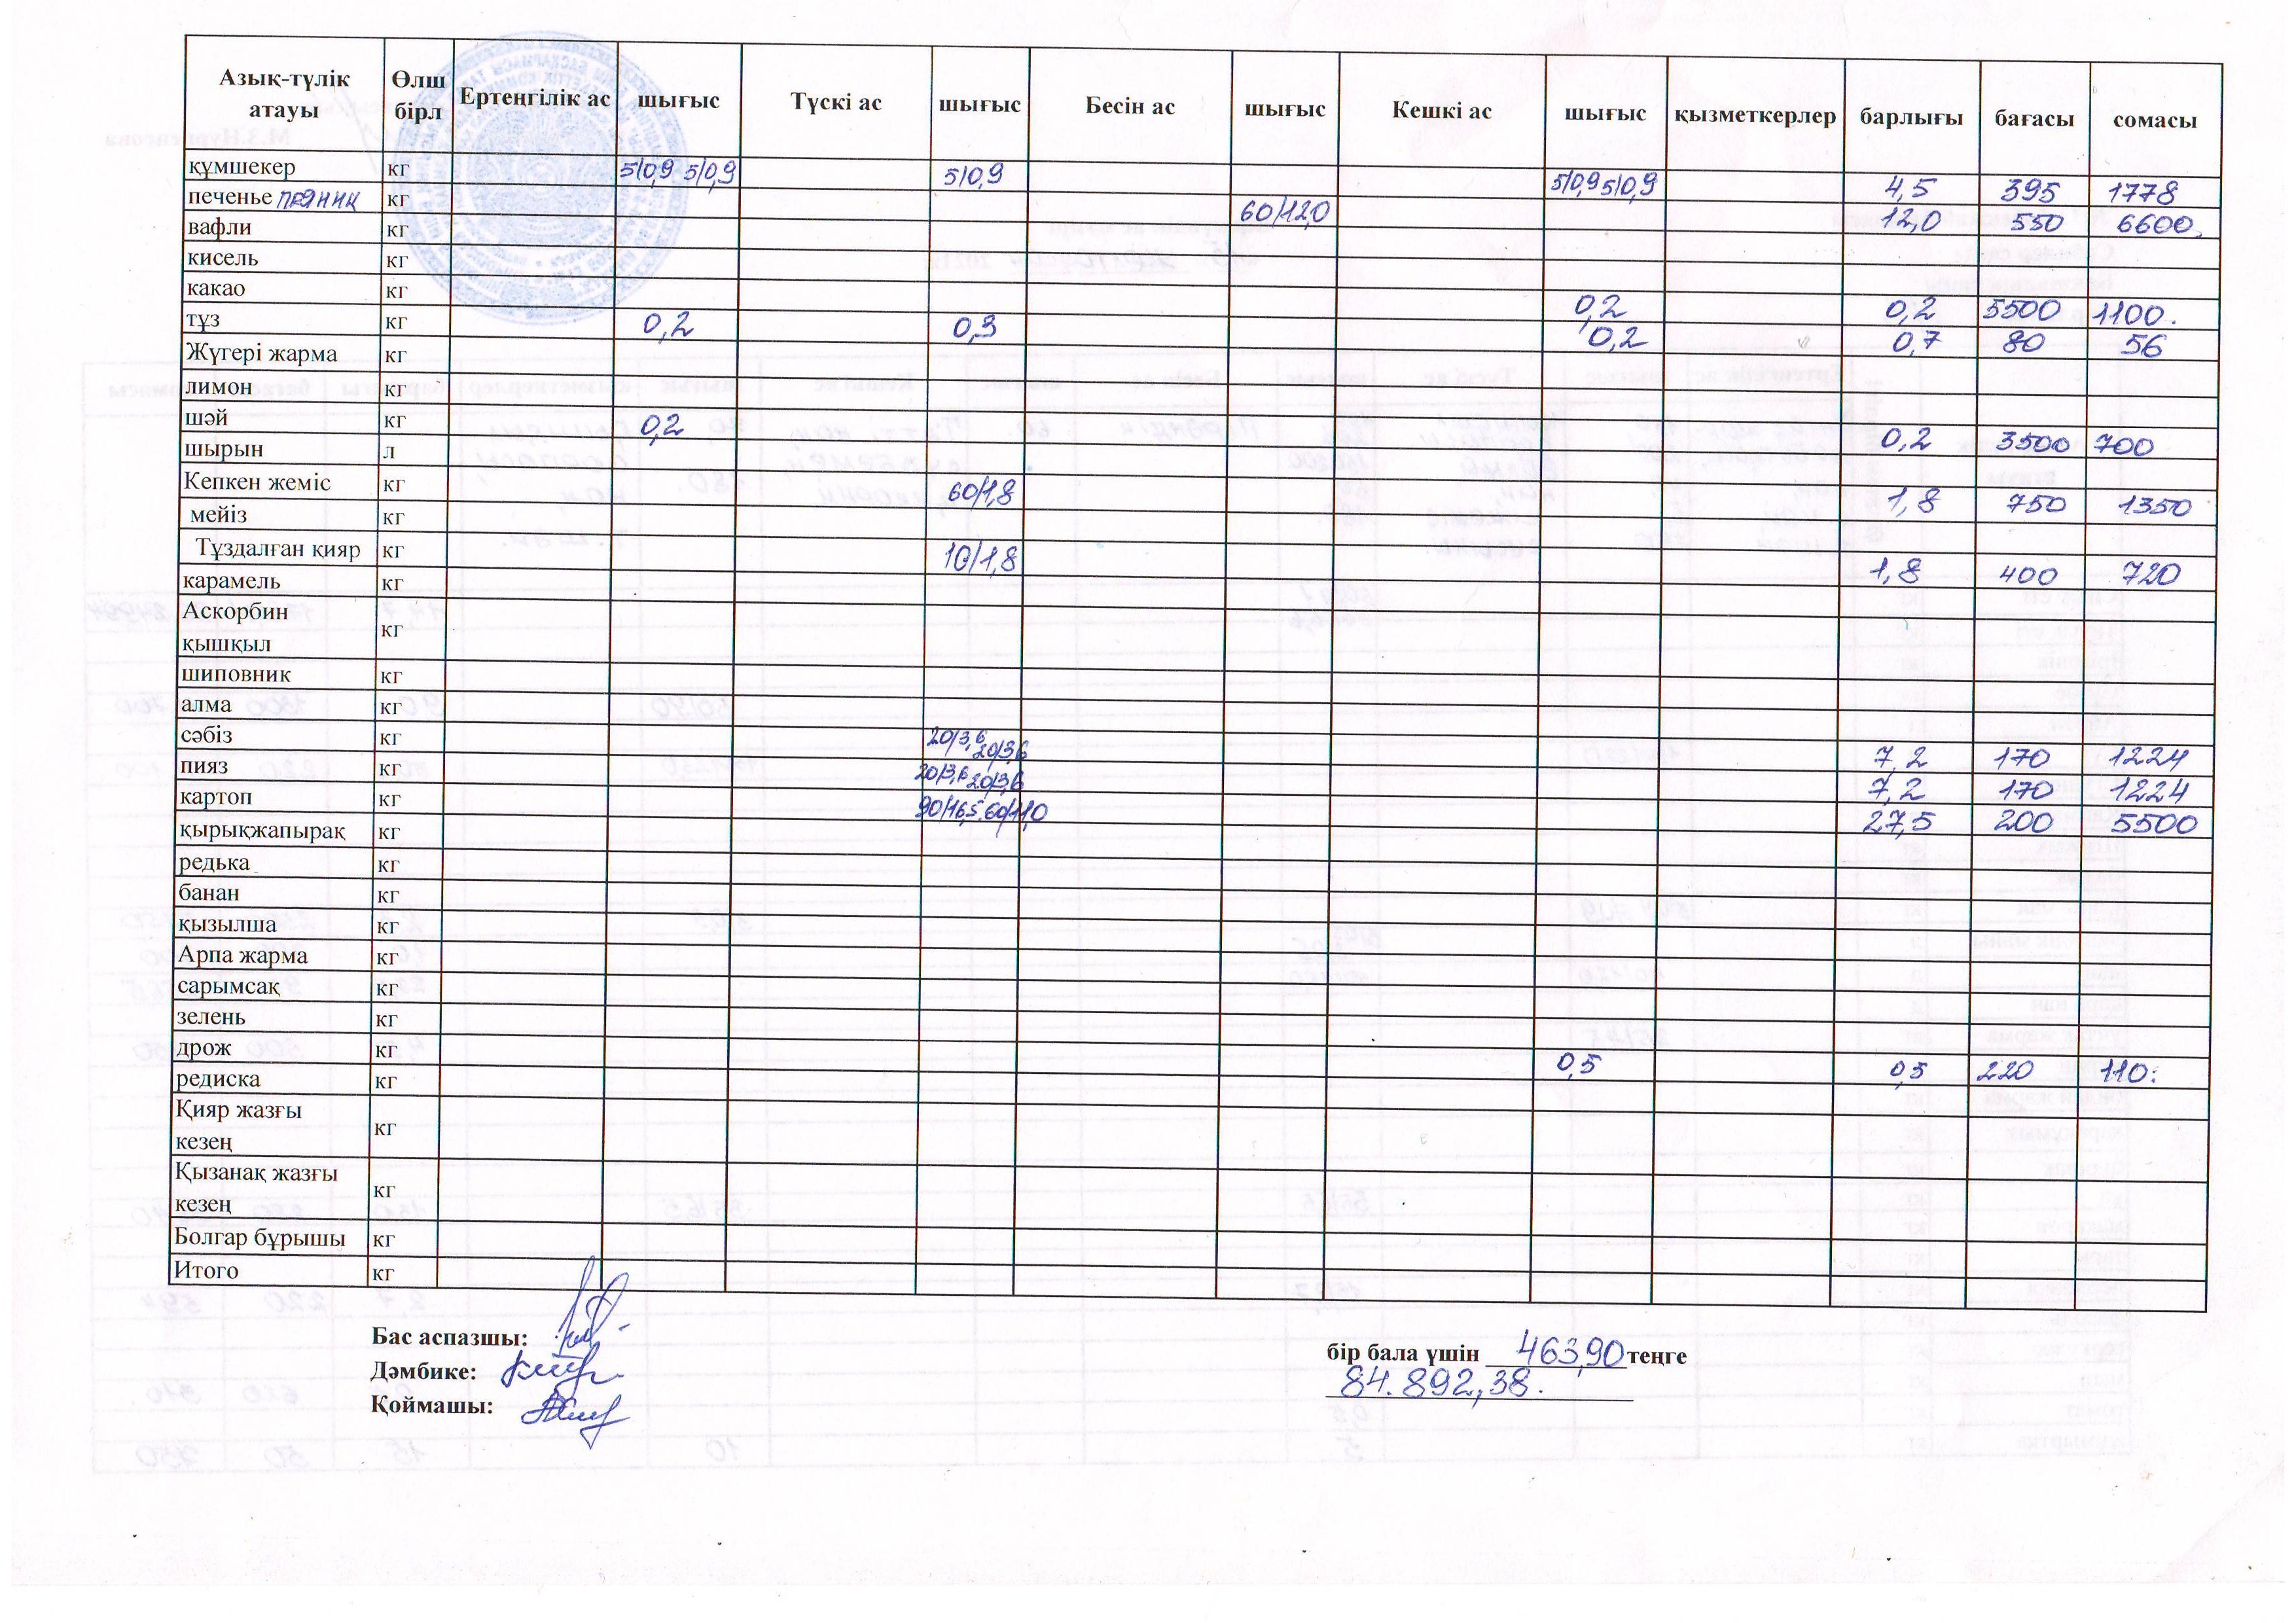 Азық-түлік атауы Өлш бірл Ертенгілік ас шығыс Түскі ас шығыс Бесін ас шығыс Кешкі ас шығыс қызметкерлер барлығы бағасы сомасы
құмшекер кг 5/0,9 5/0,9 5/0,9 5/0,9 5/0,9 4,5 395 1778
печенье пряник кг 60/12,0 12,0 550 6600
вафли кг
кисель кг
какао кг 0,2 0,2 5500 1100.
тұз кг 0,2 0,3 0,2 0,7 80 56
Жүгері жарма кг
лимон кг
шәй кг 0,2 0,2 3500 700
шырын л
Кепкен жеміс кг 60/1,8 1,8 750 1350
мейіз кг
Тұздалған қияр кг 10/1,8 1,8 400 720
карамель кг
Аскорбин қышқыл кг
шиповник кг
алма кг
сәбіз кг 20/3,6 20/3,6 7,2 170 1224
пияз кг 20/3,6 20/3,6 7,2 170 1224
картоп кг 90/16,5 60/11,0 27,5 200 5500
қырықжапырақ кг
редька кг
банан кг
қызылша кг
Арпа жарма кг
сарымсақ кг
зелень кг
дрож кг 0,5 0,5 220 110.
редиска кг
Қияр жазғы кезең кг
Қызанақ жазғы кезең кг
Болгар бұрышы кг
Итого кг
Бас аспазшы:
Дәмбике:
Қоймашы:
бір бала үшін 463,90 теңге
84.892,38.